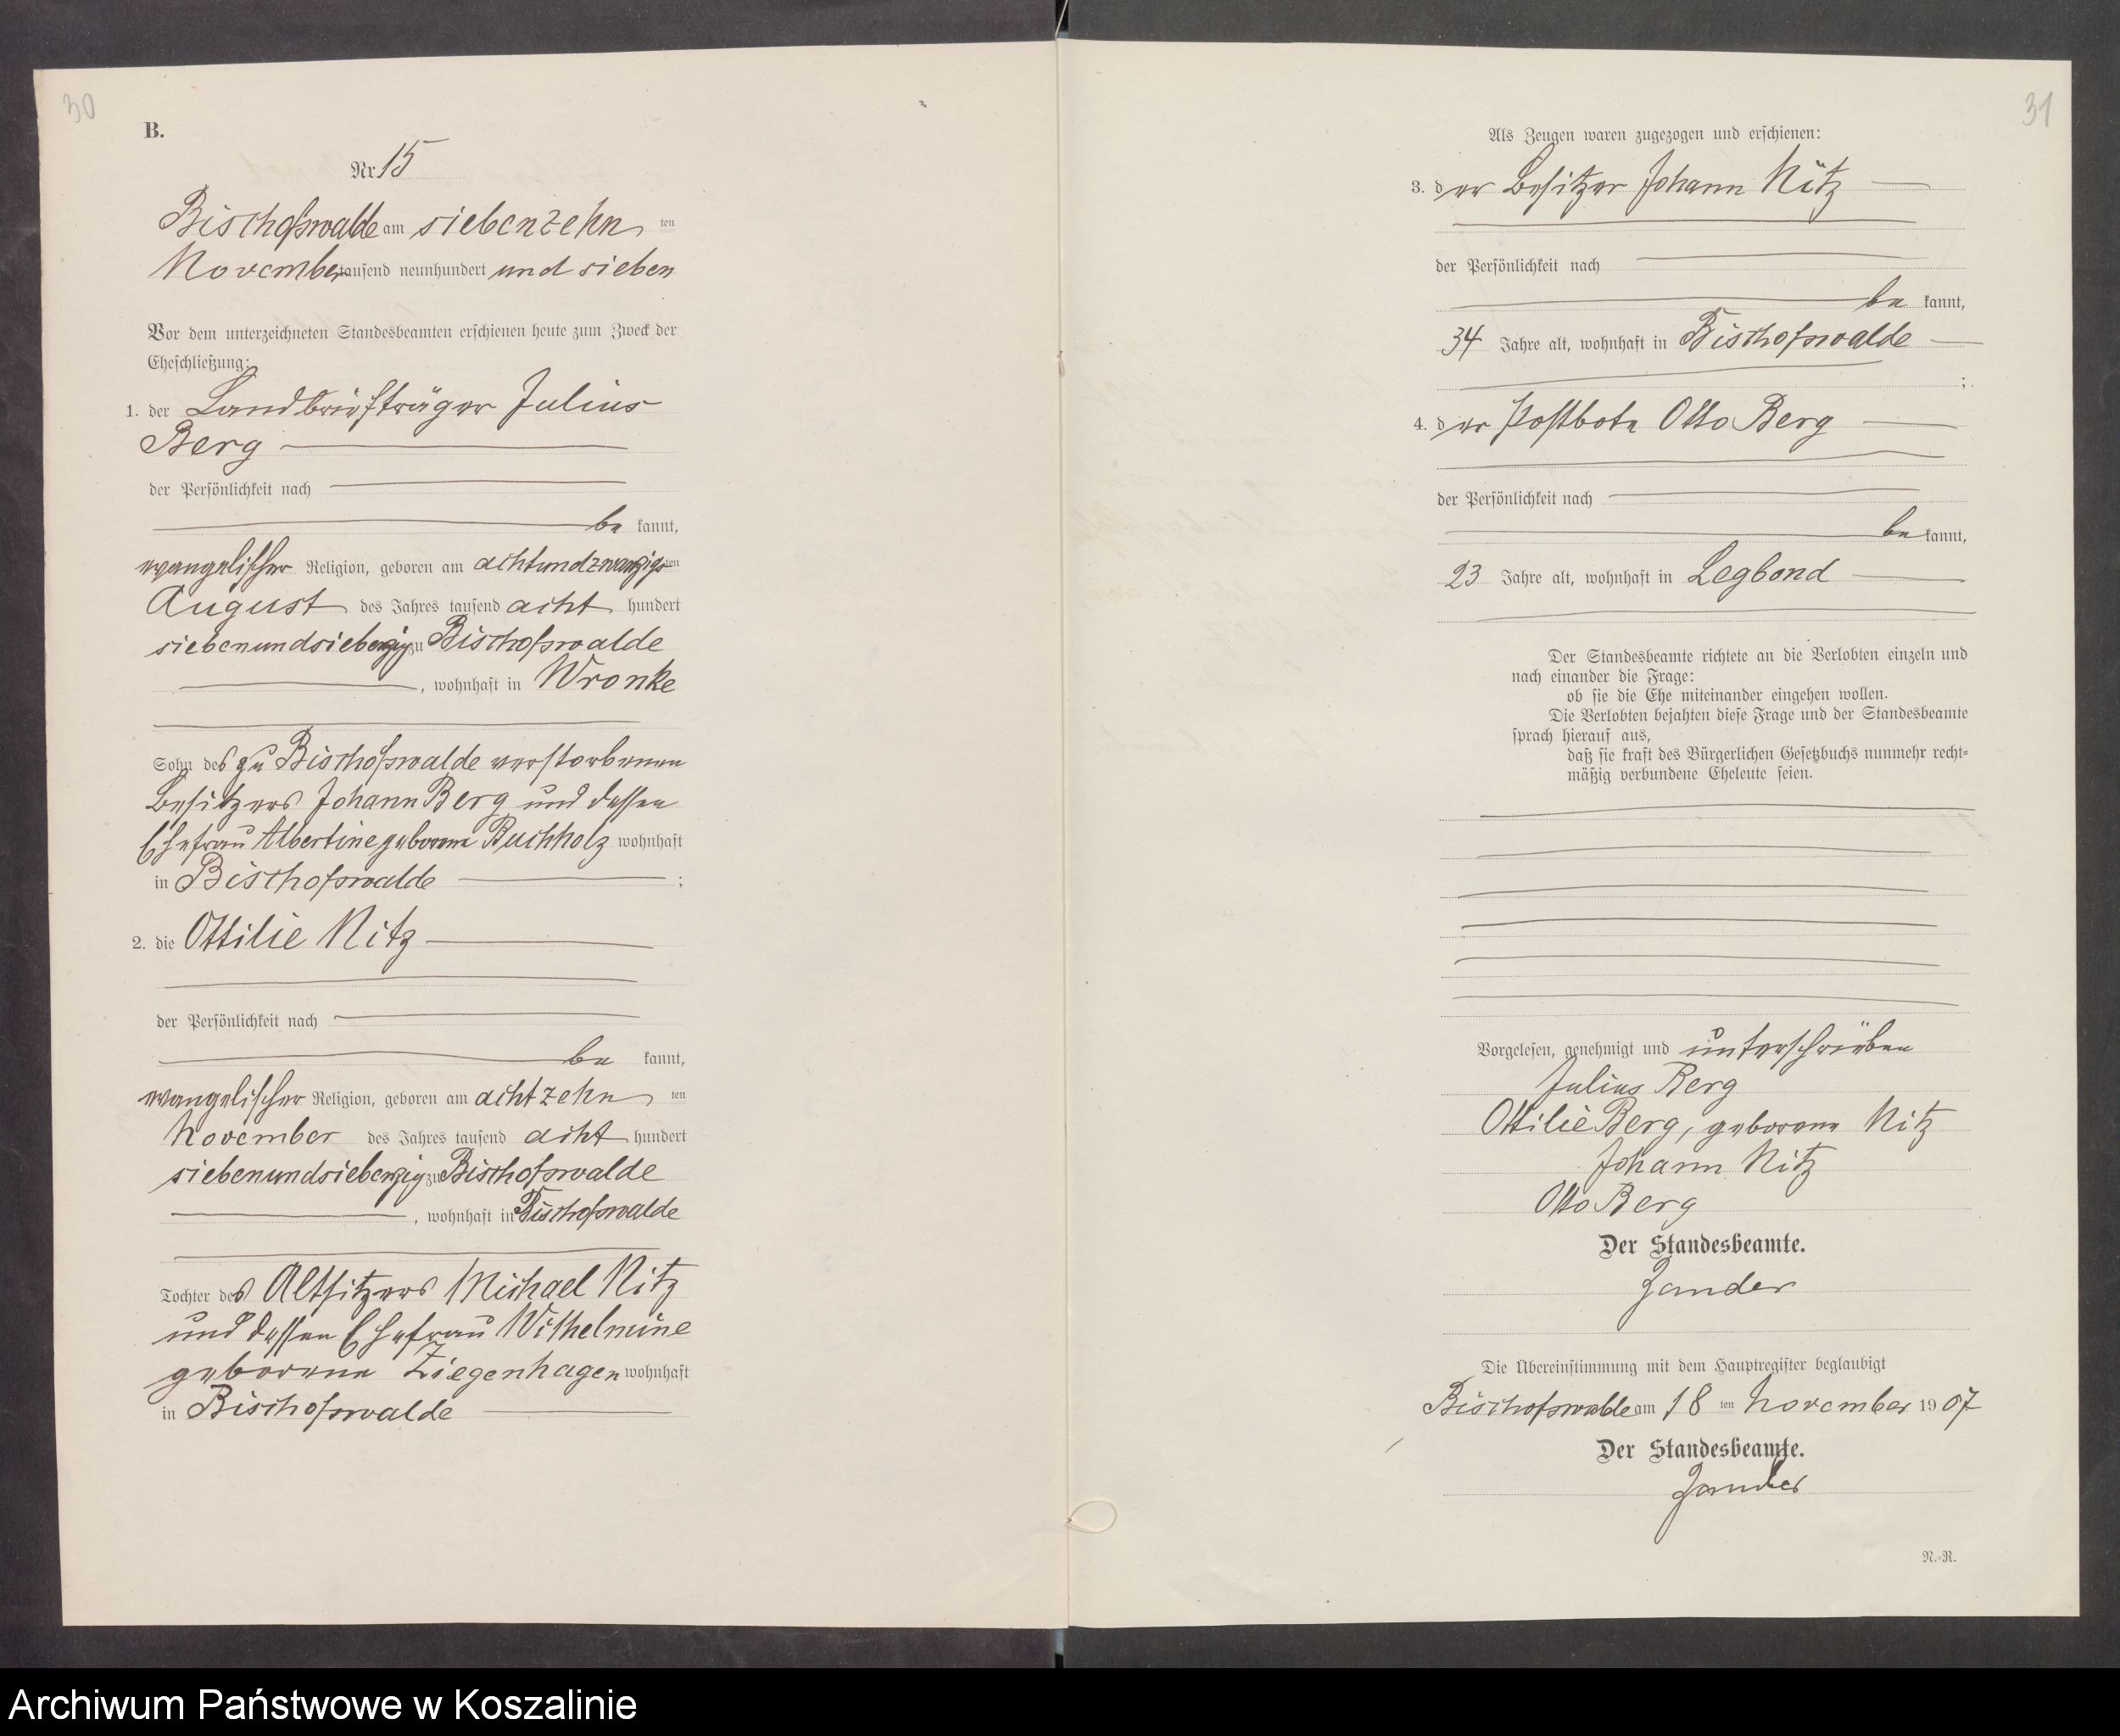 30
B.
Nr. 15
Bischofswalde am siebenzehn ten
November tausend neunhundert und sieben
Vor dem unterzeichneten Standesbeamten erschienen heute zum Zweck der
Eheschließung:
1. der Landbriefträger Julius
Berg
der Persönlichkeit nach
be kannt,
evangelischer Religion, geboren am achtundzwanzigsten
August des Jahres tausend acht hundert
siebenundsiebenzig zu Bischofswalde
, wohnhaft in Wronke
Sohn des zu Bischofswalde verstorbenen
Besitzers Johann Berg und dessen
Ehefrau Albertine geborene Buchholz wohnhaft
in Bischofswalde ;
2. die Ottilie Nitz
der Persönlichkeit nach
be kannt,
evangelischer Religion, geboren am achtzehn ten
November des Jahres tausend acht hundert
siebenundsiebenzig zu Bischofswalde
, wohnhaft in Bischofswalde
Tochter des Altsitzers Michael Nitz
und dessen Ehefrau Wilhelmine
geborene Ziegenhagen wohnhaft
in Bischofswalde
31
Als Zeugen waren zugezogen und erschienen:
3. der Besitzer Johann Nitz
der Persönlichkeit nach
be kannt,
34 Jahre alt, wohnhaft in Bischofswalde
;
4. der Postbote Otto Berg
der Persönlichkeit nach
be kannt,
23 Jahre alt, wohnhaft in Legbond
Der Standesbeamte richtete an die Verlobten einzeln und
nach einander die Frage:
ob sie die Ehe miteinander eingehen wollen.
Die Verlobten bejahten diese Frage und der Standesbeamte
sprach hierauf aus,
daß sie kraft des Bürgerlichen Gesetzbuchs nunmehr recht-
mäßig verbundene Eheleute seien.
Vorgelesen, genehmigt und unterschrieben
Julius Berg
Ottilie Berg, geborene Nitz
Johann Nitz
Otto Berg
Der Standesbeamte.
Zander
Die Übereinstimmung mit dem Hauptregister beglaubigt
Bischofswalde am 18 ten November 1907
Der Standesbeamte.
Zander
R.-R.
Archiwum Państwowe w Koszalinie